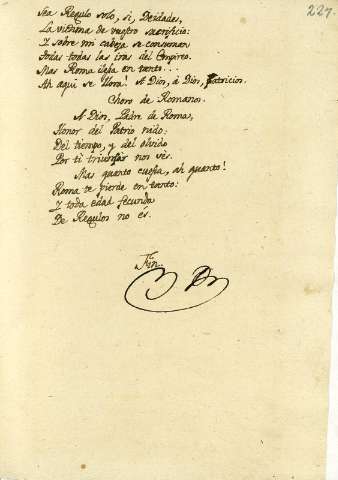 227.
Sea Regulo solo, si, Deidades,
La victima de vuestro sacrificio:
Y sobre mi cabeza se consuman
Todas todas las iras del Empireo.
Mas Roma ilesa en tanto...
Ah aqui se llora! A Dios, à Dios, Patricios.
Choro de Romanos.
A Dios, Padre de Roma,
Honor del Patrio nido:
Del tiempo, y del olvido
Por ti triunfar nos ves.
Mas quanto cuesta, ah quanto!
Roma te pierde en tanto:
Y toda edad fecunda
De Regulos no és.
Fin.